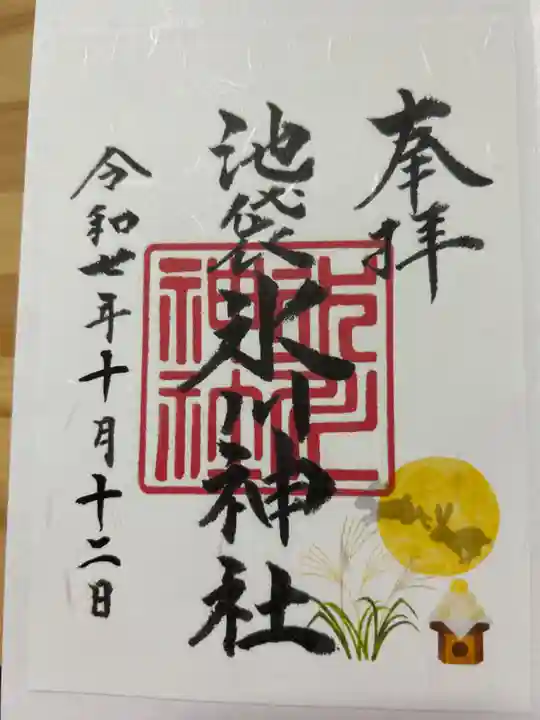 奉拝
池袋氷川神社
令和七年十月十二日